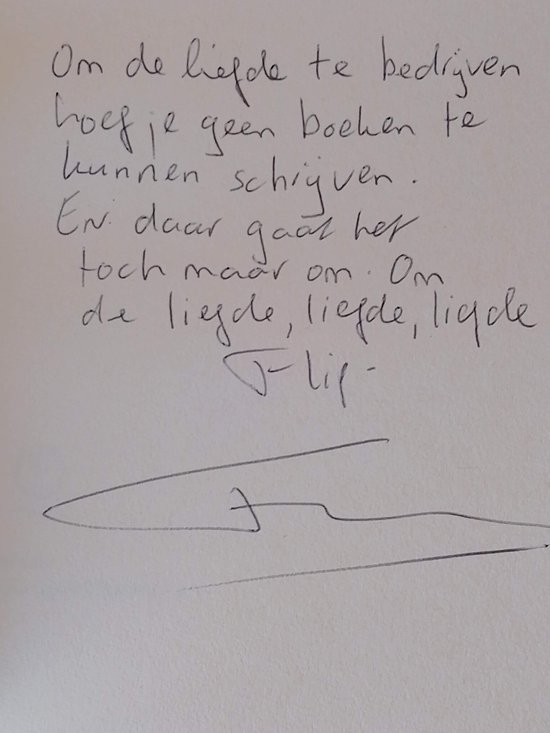 Om de liefde te bedrijven
hoef je geen boeken te
kunnen schrijven.
En daar gaat het
toch maar om. Om
de liefde, liefde, liefde
Flip-